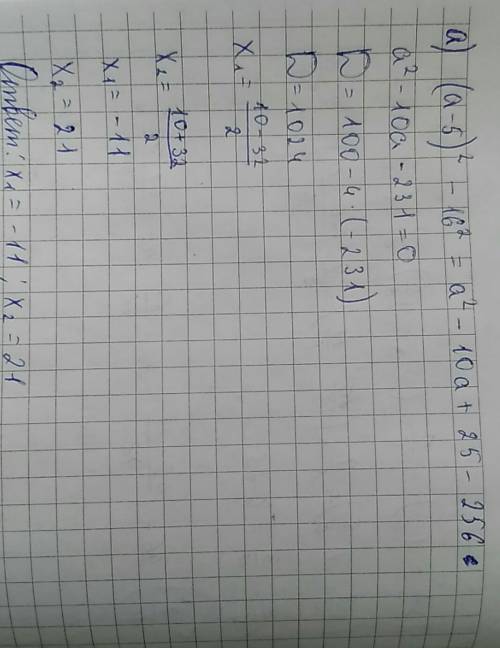 а) (a-5)² - 16² = a² - 10a + 25 - 256
a² - 10a - 231 = 0
D = 100 - 4·(-231)
D = 1024
x₁ = \frac{10 - 32}{2}
x₂ = \frac{10 + 32}{2}
x₁ = -11
x₂ = 21
Ответ: x₁ = -11; x₂ = 21